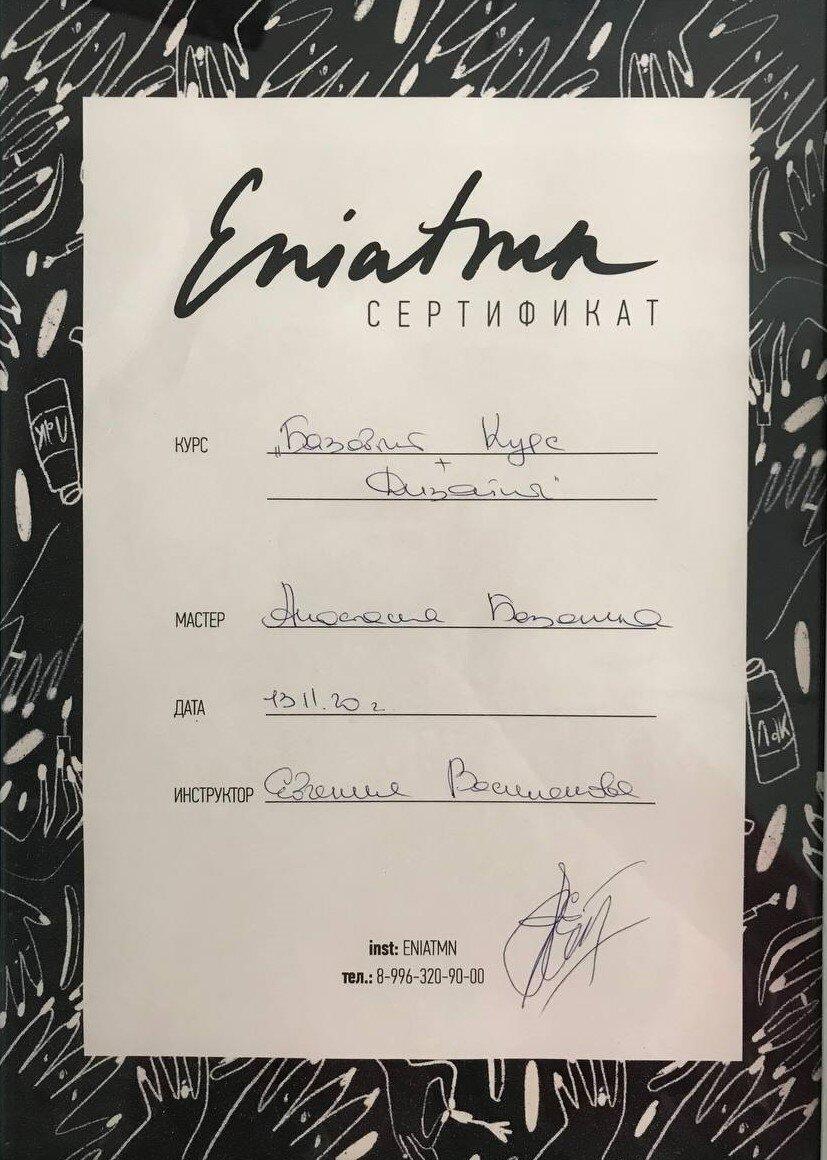 Eniatmn
СЕРТИФИКАТ
КУРС „Базовый Курс
+
Дизайн"
МАСТЕР Анастасия
ДАТА 13.11.20 г.
ИНСТРУКТОР Евгения
inst: ENIATMN
тел.: 8-996-320-90-00
ЛДК
ЛДК